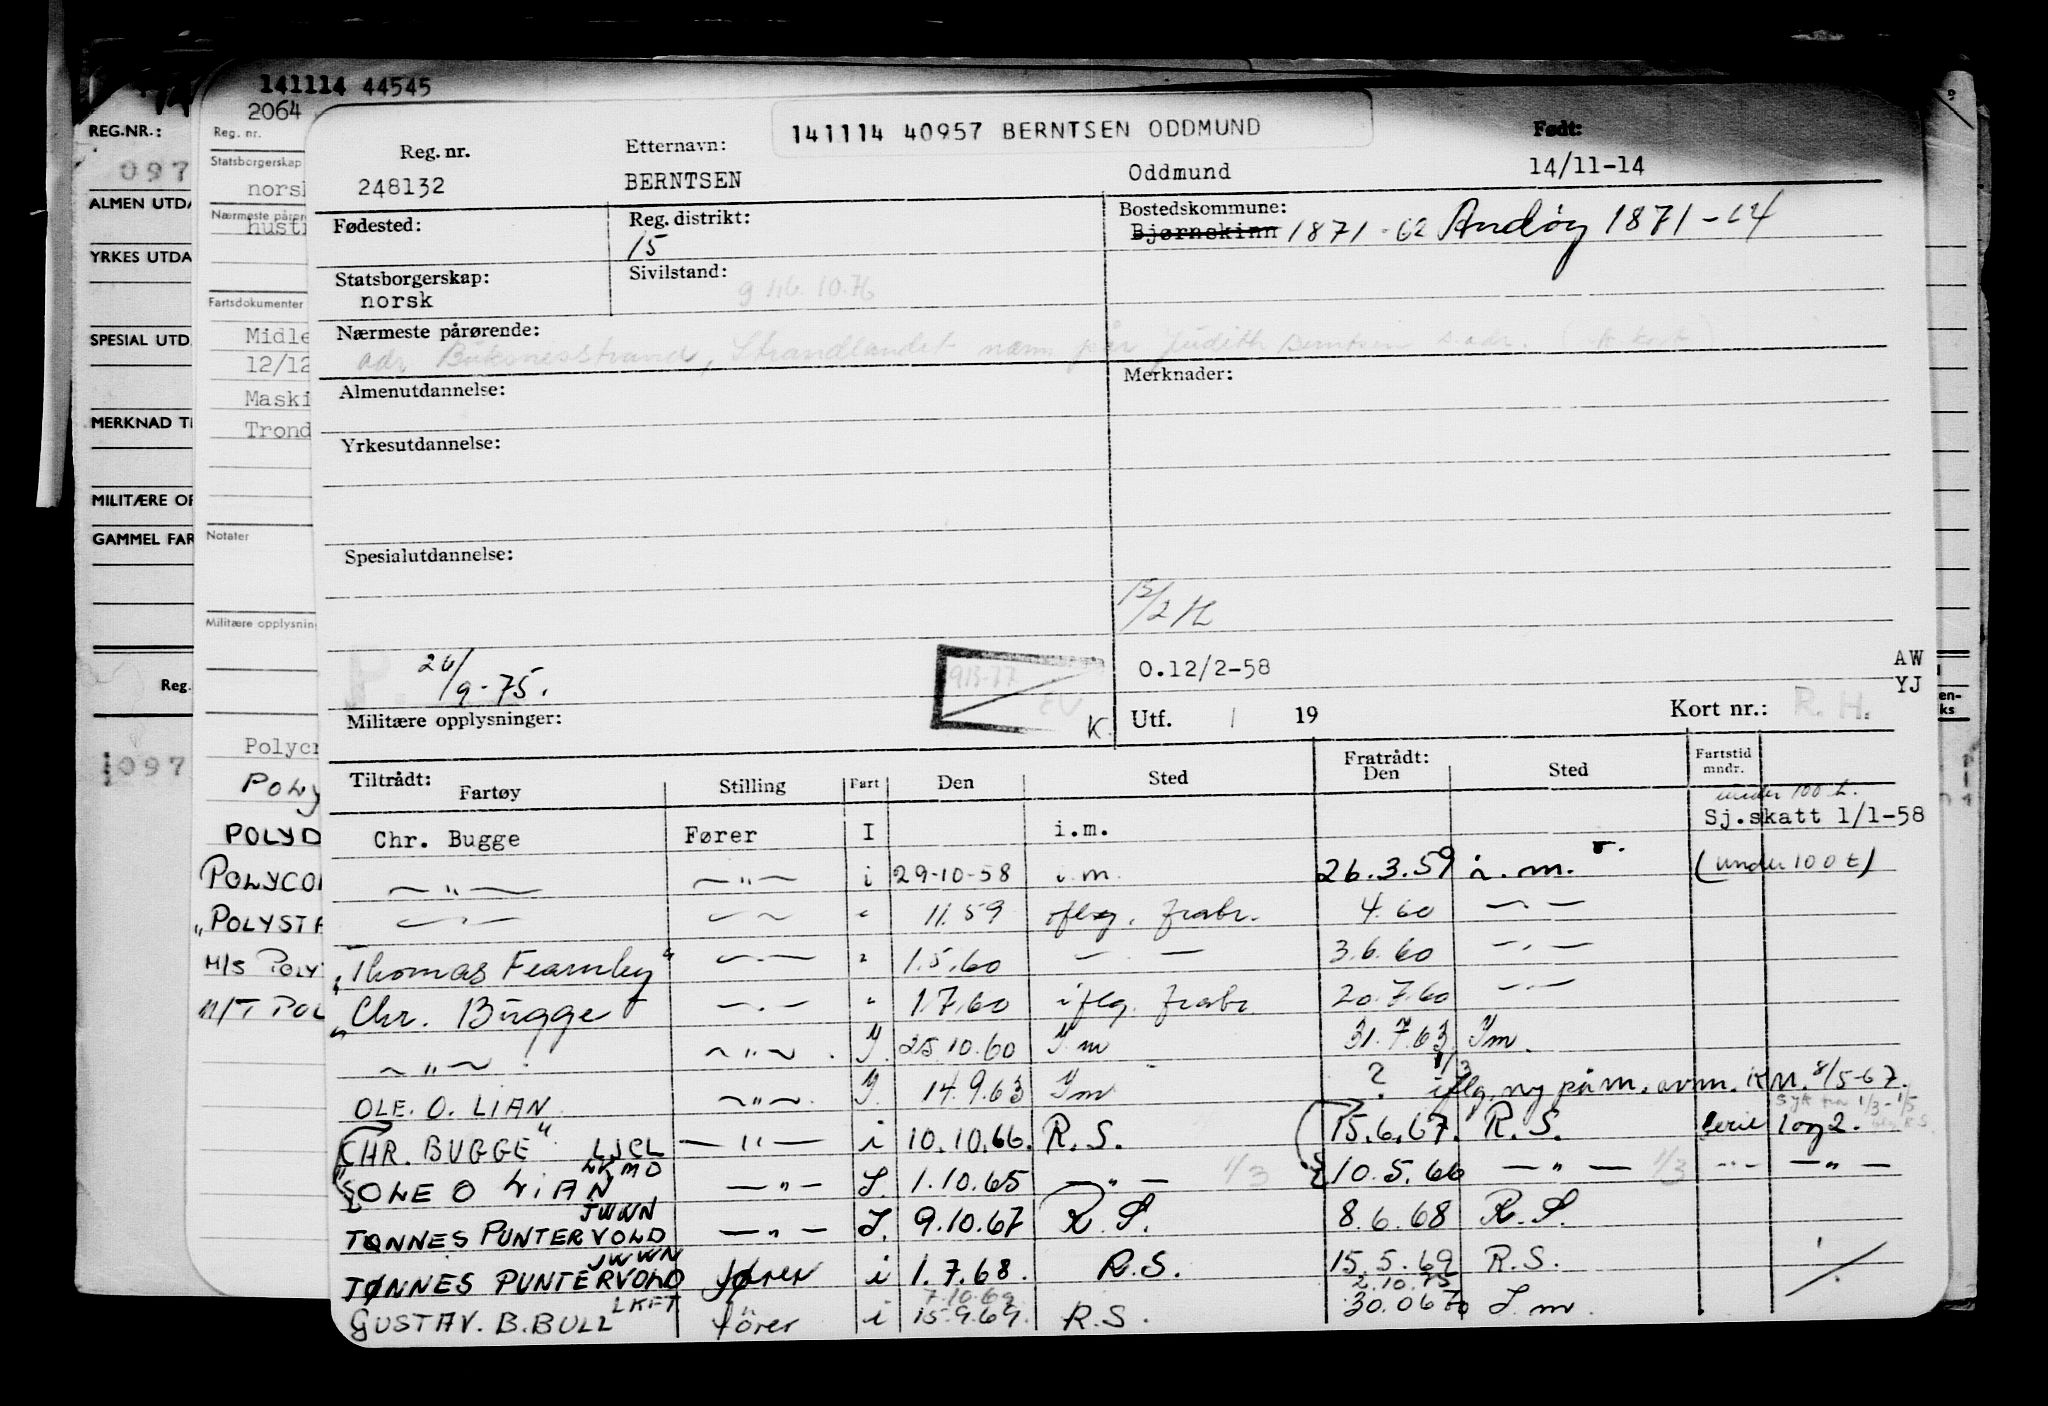 141114 44545
2064
141114 40957 BERNTSEN ODDMUND
REG.NR.:
097
ALMEN UTDA
YRKES UTDA
SPECIAL UTD
MERKNAD TI
MILITÆRE OP
GAMMEL FAR
Reg.
097
Reg. nr.
Statsborgerskap
norsk
Nærmeste pårøre
hustr
Fartsdokumenter
Midle
12/12
Maski
Trond
Notater
Militære opplysning
Polycr
POLY
POLYD
POLYCO
"POLYSTA
M/S POLY
M/T POL
Reg. nr. Etternavn: Født:
248132 BERNTSEN Oddmund 14/11-14
Fødested: Reg. distrikt: 15 Bostedskommune:
Bjørnskinn 1871-62 Andøy 1871-64
Statsborgerskap: Sivilstand:
norsk g 16.10.76
Nærmeste pårørende:
adr Buksnesstrand, Strandlandet nærm pår Judith Berntsen s.adr.
Almenutdannelse: Merknader:
Yrkesutdannelse:
Spesialutdannelse:
12/2 H
26/9-75.
O.12/2-58 AW
YJ
Militære opplysninger: K. Utf. / 19 Kort nr.: R.H.
Tiltrådt: Fartøy Stilling Fart Den Sted Fratrådt: Den Sted Fartstid mndr.
under 100 t.
Chr. Bugge Fører I i.m. Sj.skatt 1/1-58
— " — — " — i 29-10-58 i.m. 26.3.59 i.m. (under 100 t)
— " — — " — " 11.59 oflg. frabr. 4.60 — " —
"Thomas Fearnley" — " — " 1.5.60 — " — 3.6.60 — " —
"Chr. Bugge — " — " 1.7.60 iflg. frabr 20.7.60 — " —
— " — — " — I. 25.10.60 I m 31.7.63 I m.
OLE. O. LIAN — " — I. 14.9.63 I m ? 1/3 iflg. ny påm. avm. KM. 8/5-67.
syk fra 1/3-1/5
"CHR. BUGGE" LJCL — " — i 10.10.66. R.S. 15.6.67. R.S. Serie 1 og 2.
"OLE O LIAN LKMO — " — I. 1.10.65 — " — 1/3 10.5.66 — " — 1/3 — " — — " —
TØNNES PUNTERVOLD JWWN — " — I. 9.10.67 R.S. 8.6.68 R.S.
TØNNES PUNTERVOLD JWWN fører i 1.7.68. R.S. 15.5.69 R.S.
7.10.69 2.10.75
GUSTAV. B. BULL LKFT fører i 15.9.69. R.S. 30.06.70 I.m.